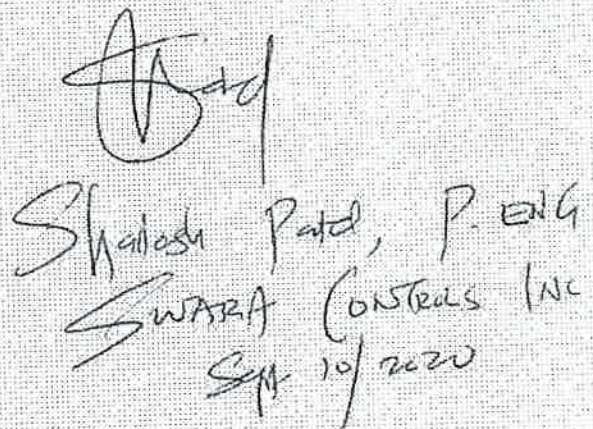 Shailesh Patel, P. ENG
SWARA CONTROLS INC
Sept 10/2020